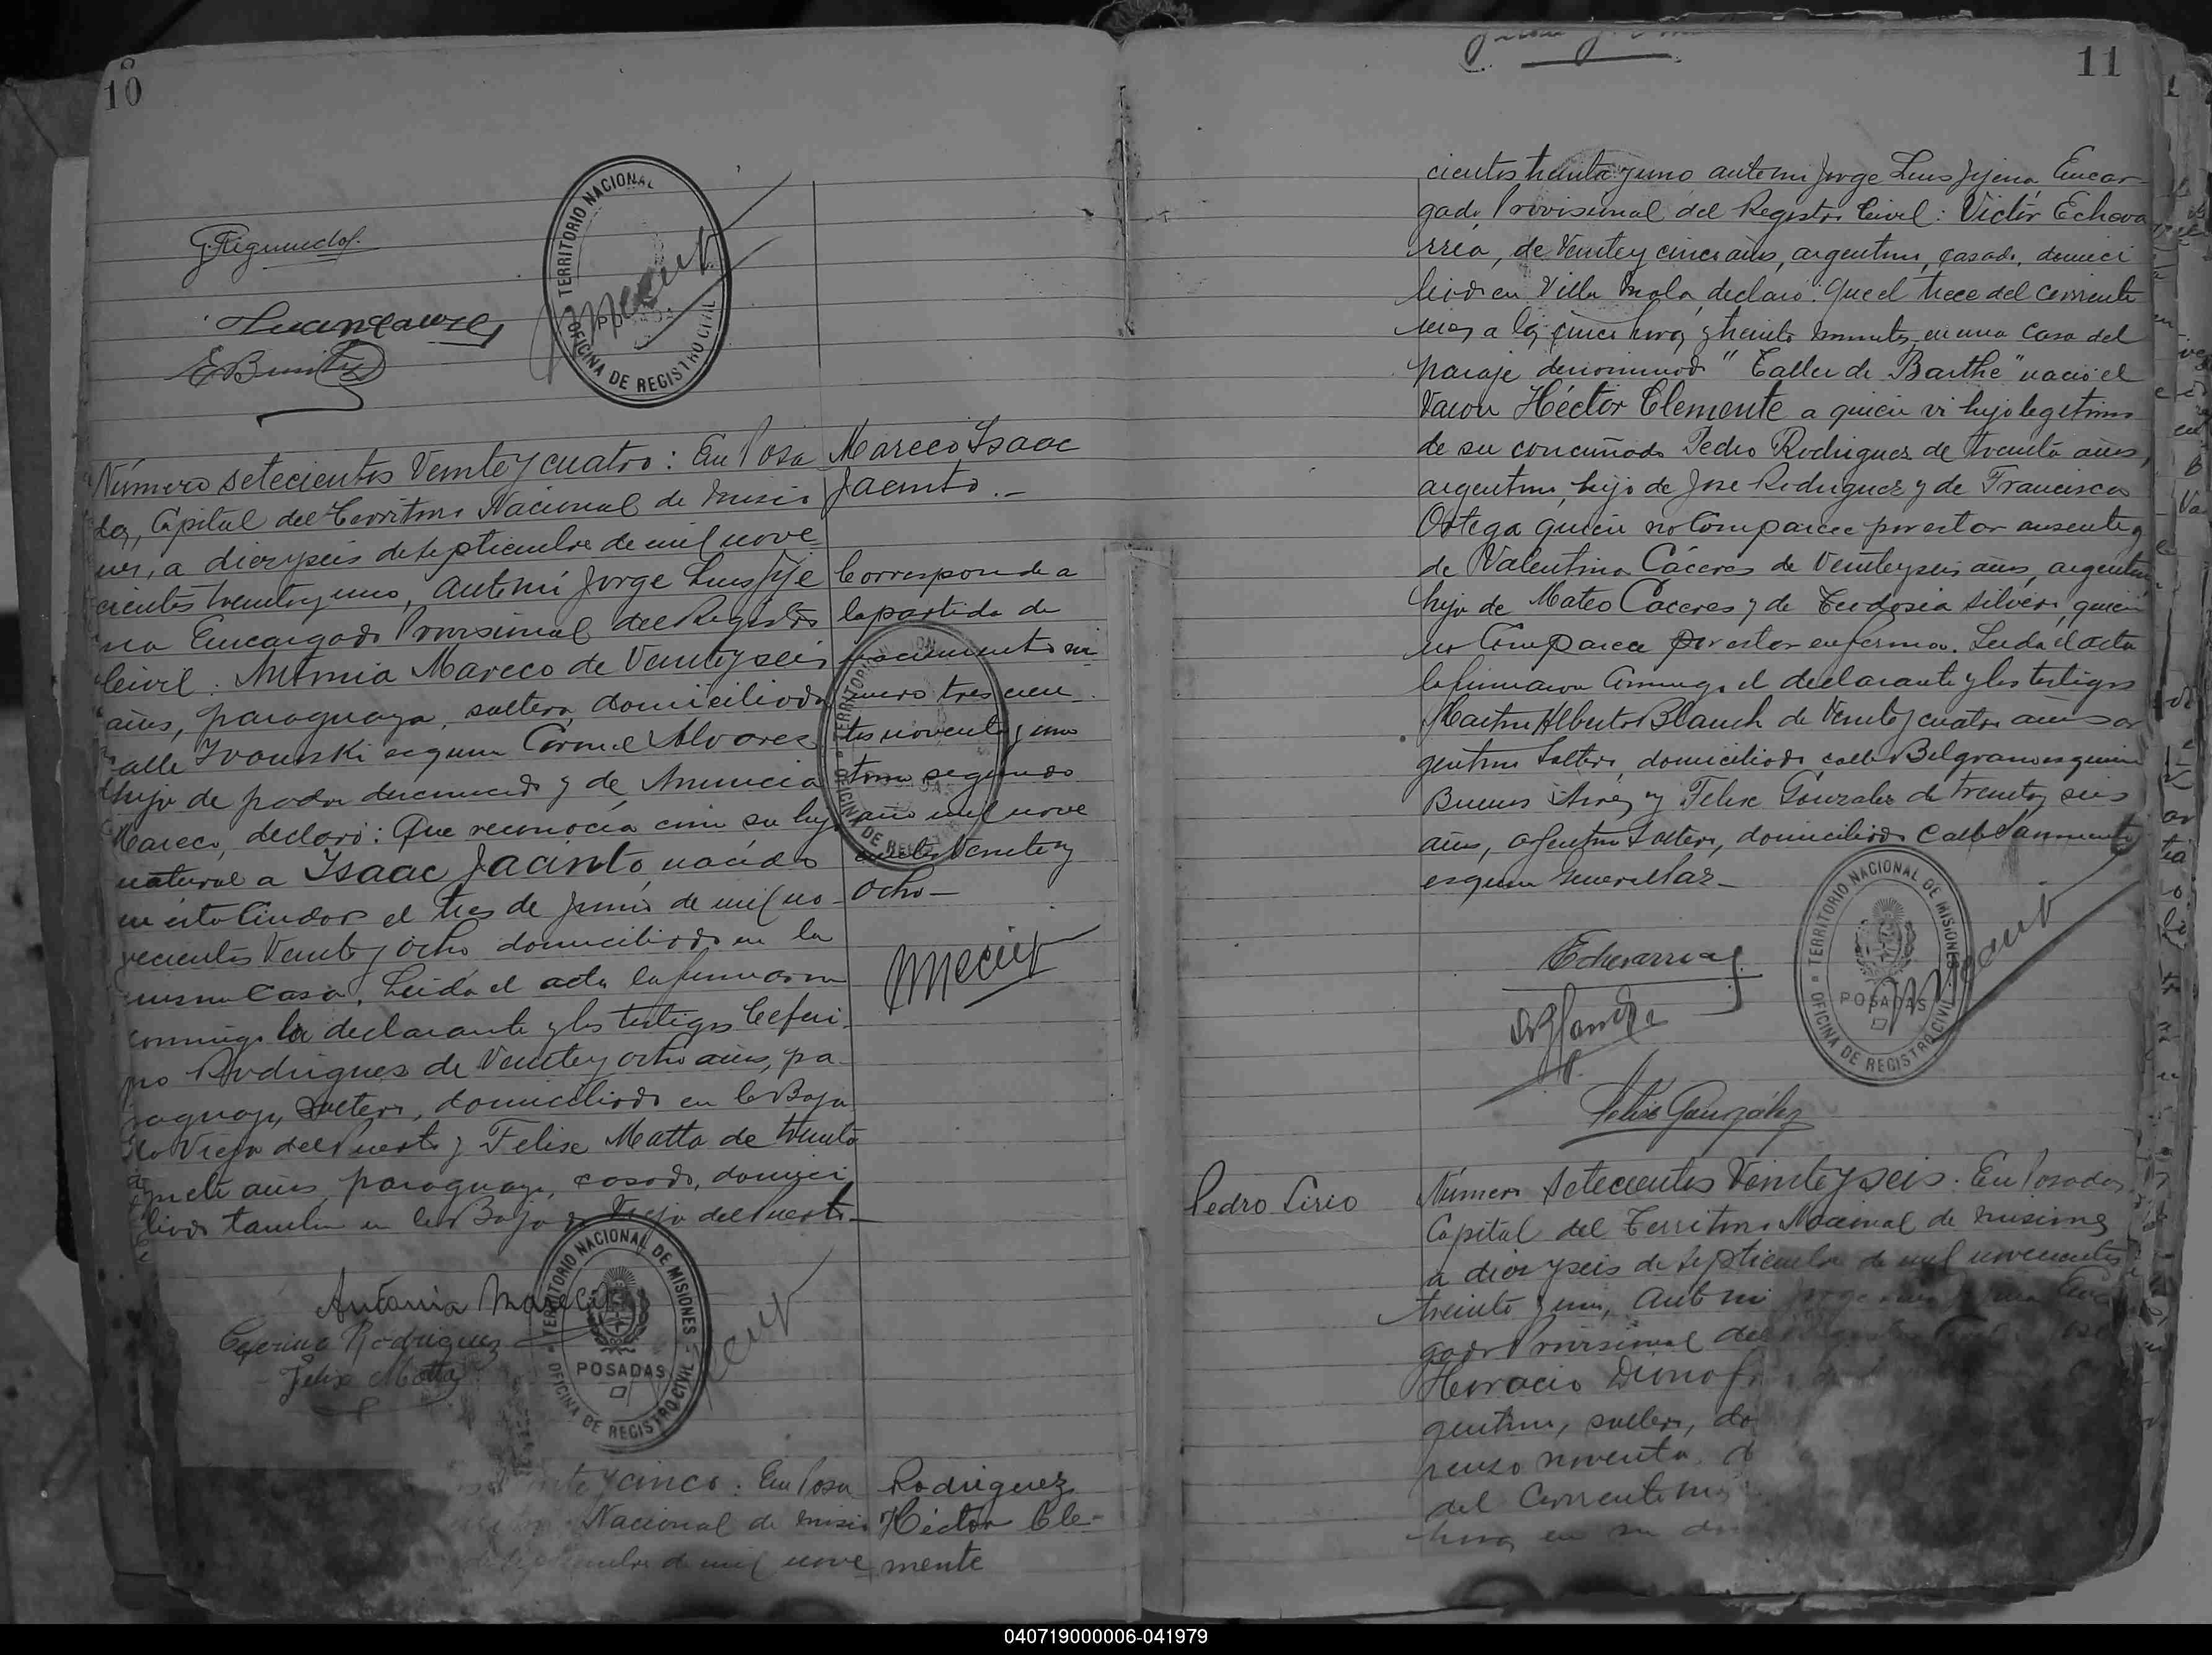 10
TERRITORIO NACIONAL
OFICINA DE REGISTRO CIVIL
Número setecientos Veinte y cuatro: En Posa
das, Capital del Territorio Nacional de Misio
nes, a diez y seis de septiembre de mil nove
cientos treinta y uno, Ante mí Jorge Luis Jije
na Encargado Provisional del Registro
Civil: Antonia Mareco de Veinte y seis
años, paraguaya, soltera, domiciliada
calle Ivouski esquina Coronel Alvarez
hija de padre desconocido y de Anuncia
Mareco, declaró: Que reconocía como su hijo
natural a Isaac Jacinto, nacido
en esta Ciudad el tres de junio de mil no-
vecientos Veinte y ocho domiciliado en la
misma Casa. Leída el acta la firmaron
conmigo la declarante y los testigos Ceferi-
no Rodriguez de Veinte y ocho años, pa-
raguayo, soltero, domiciliado en la Baja
da Vieja del Puerto y Felix Matta de treinta
y siete años, paraguayo, casado, domici
liado tambien en la Bajada Vieja del Puerto-
Mareco Isaac
Jacinto.-
Corresponde a
la partida de
nacimiento nú
mero trescien
tos noventa y uno
tomo segundo
año mil nove
cientos Veinte y
Ocho-
Antonia Mareco
Ceferino Rodriguez
Felix Matta
TERRITORIO NACIONAL DE MISIONES
POSADAS
OFICINA DE REGISTRO CIVIL
y cinco: En Posa
Nacional de Misio
de septiembre de mil nove
Rodriguez
Héctor Cle-
mente
11
cientos treinta y uno ante mi Jorge Luis Jijena Encar-
gado Provisional del Registro Civil: Victor Echeva
rría, de Veinte y cinco años, argentino, casado, domici
liado en Villa Mola, declaró: Que el trece del corriente
mes a las cinco horas y treinta minutos, en una casa del
paraje denominado "Taller de Barthe" nació el
Varon Héctor Clemente a quien vi hijo legitimo
de su concuñado Pedro Rodriguez de treinta años,
argentino, hijo de Jose Rodriguez y de Francisca
Ortega quien no Comparece por estar ausente y
de Valentina Cáceres de Veinte y seis años, argentina
hija de Mateo Caceres y de Teodosia Silvero, quien
no Comparece por estar enferma. Leida el acta
la firmaron Conmigo el declarante y los testigos
Martin Alberto Blanch de Veinte y cuatro años ar
gentino Soltero, domiciliado calle Belgrano esquina
Buenos Aires y Felix Gonzalez de treinta y seis
años, argentino soltero, domiciliado Calle Sarmiento
esquina
Echevarria
Felix González
TERRITORIO NACIONAL DE MISIONES
POSADAS
OFICINA DE REGISTRO CIVIL
Pedro Lirio
Número Setecientos Veinte y seis. En Posadas
Capital del Territorio Nacional de Misiones
a diez y seis de septiembre de mil novecientos
treinta y uno, Ante mi
gado Provisional del
Horacio
gentino, soltero, do
noventa, d
del Corriente mes
horas en su do
040719000006-041979